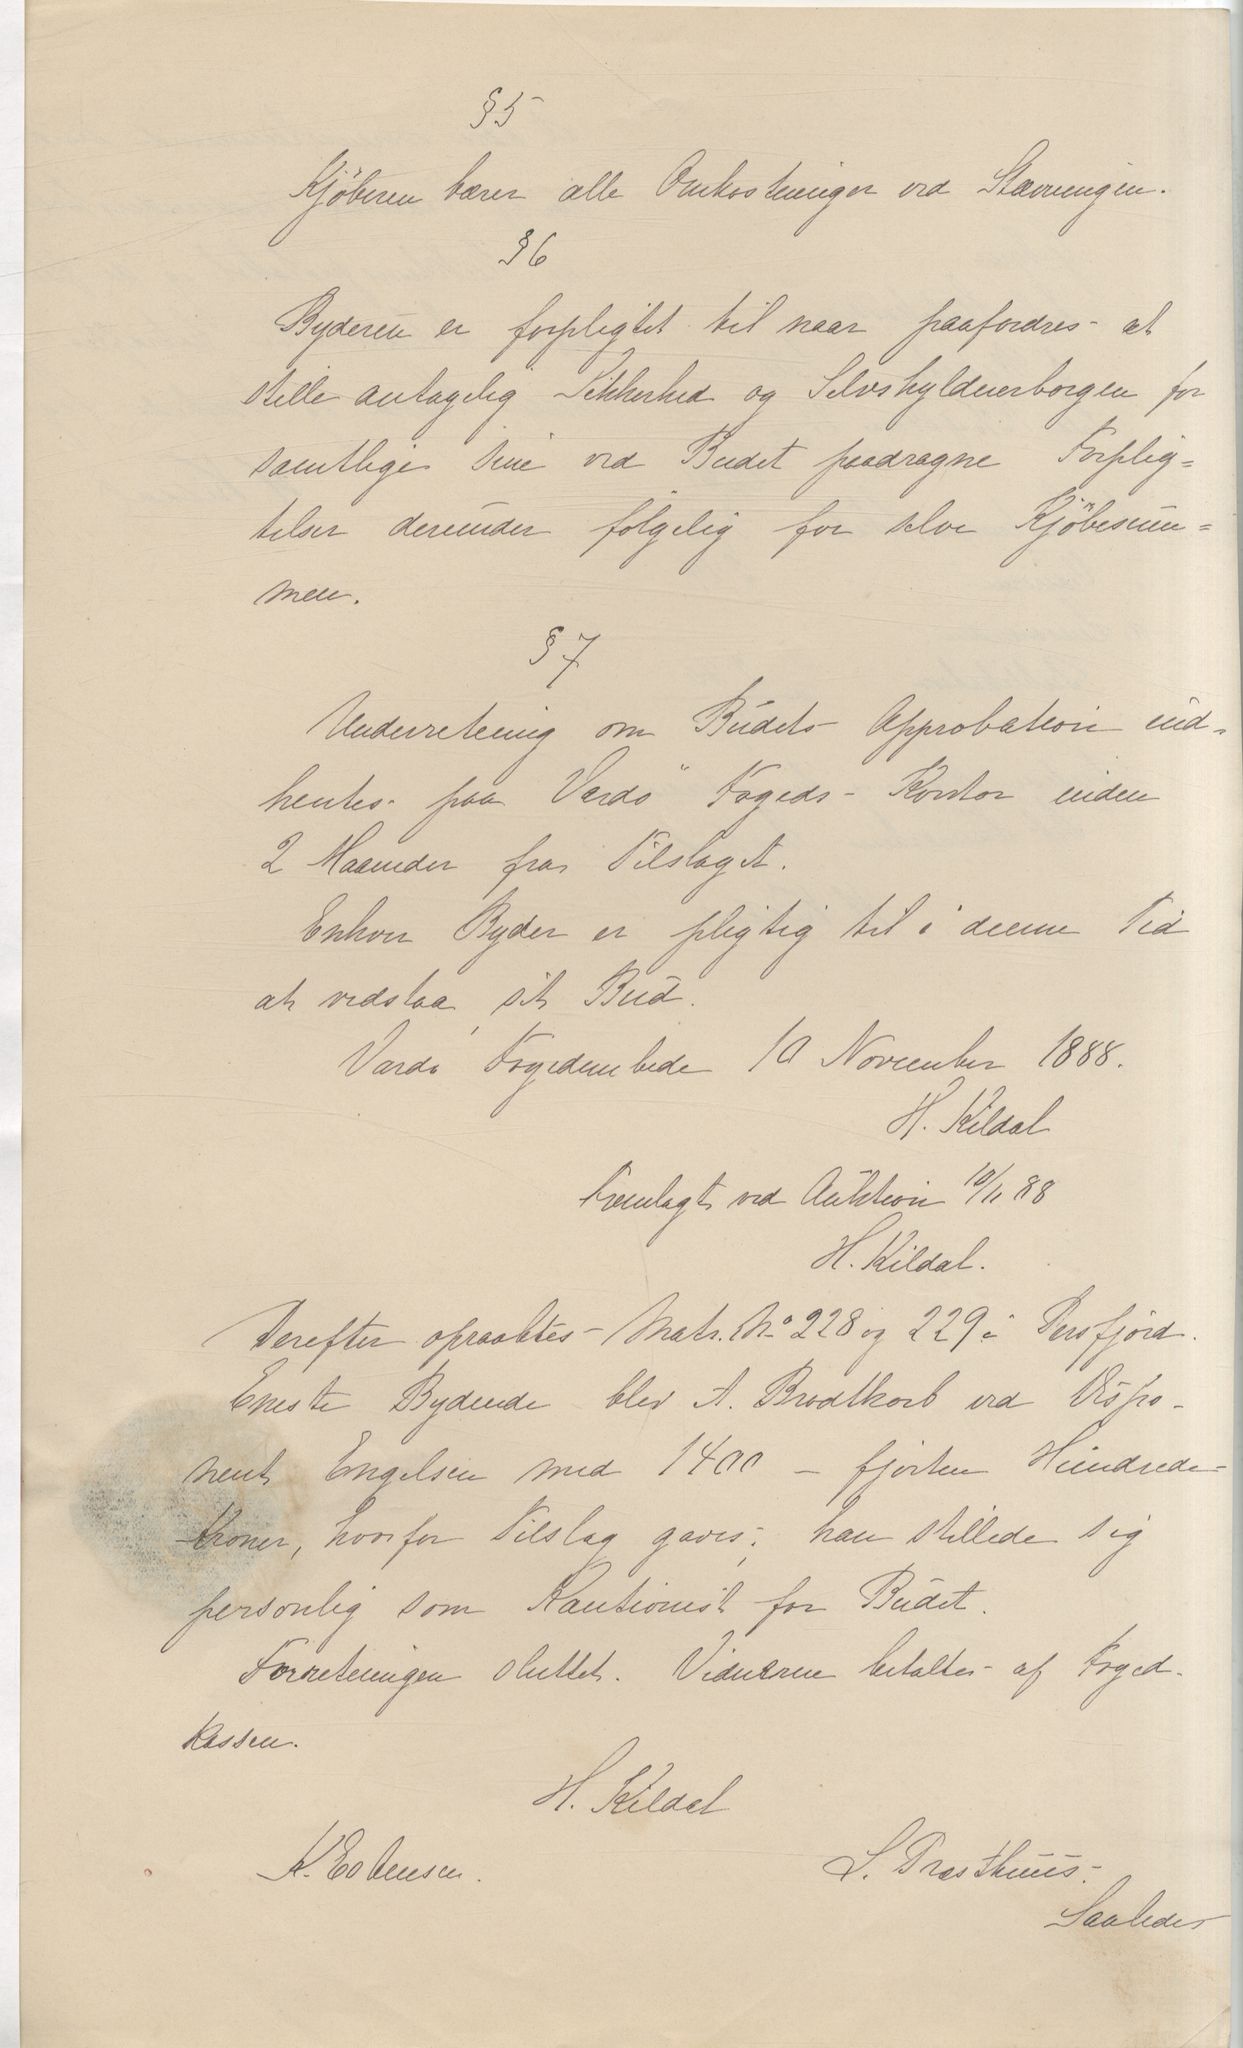 § 5
Kjöberen bærer alle Omkostninger ved Stævningen.
§ 6
Byderen er forpligtet til naar paafordres at
stille antagelig Sikkerhed og Selvskyldnerborgen for
samtlige sine ved Budet paadragne Forplig=
telser derunder fölgelig for selve Kjöbesum=
men.
§ 7
Underretning om Budets Approbation ind-
hentes paa Vardö Fogeds-Kontor inden
2 Maaneder fra Tilslaget.
Enhver Byder er pligtig til i denne Tid
at vedstaa sit Bud.
Vardö Fogedembede 10 November 1888.
H. Kildal
Fremlagt ved Auktion 10/11 88
H. Kildal.
Derefter opraabtes Matr. No 228 og 229 i Persfjord.
Eneste Bydende blev A. Brodtkorb ved Dispo-
nent Engelsen med 1400 - fjorten Hundrede-
kroner, hvorfor Tilslag gaves; han stillede sig
personlig som Kautionist for Budet.
Forretningen sluttet. Vidnerne betaltes af Foged-
kassen.
H. Kildal
K. Esbensen. L. Præsthuus.
Saaledes